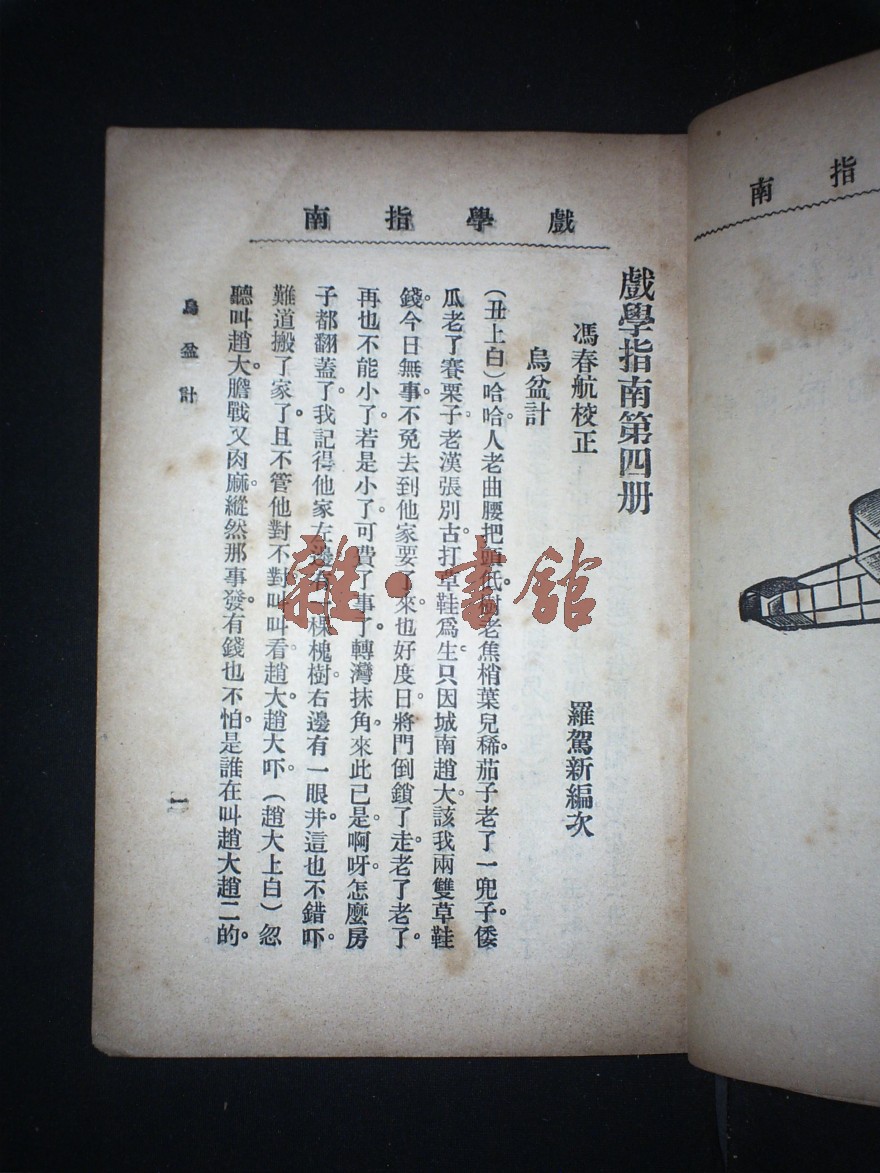 戲學指南
戲學指南第四册
馮春航校正 羅駕新編次
烏盆計
（丑上白）哈哈人老曲腰把頭低。樹老焦梢葉兒稀。茄子老了一兜子。倭
瓜老了賽栗子。老漢張別古。打草鞋爲生。只因城南趙大該我兩雙草鞋
錢。今日無事。不免去到他家要了來。也好度日。將門倒鎖了走。老了老了。
再也不能小了。若是小了。可費了事了。轉灣抹角。來此已是。啊呀。怎麼房
子都翻蓋了。我記得他家左邊有一棵槐樹。右邊有一眼井。這也不錯吓。
難道搬了家了。且不管他對不對。叫叫看。趙大。趙大吓。（趙大上白）忽
聽叫趙大。膽戰又肉麻。縱然那事發。有錢也不怕。是誰在叫趙大趙二的。
烏盆計
一
指南
雜·書館